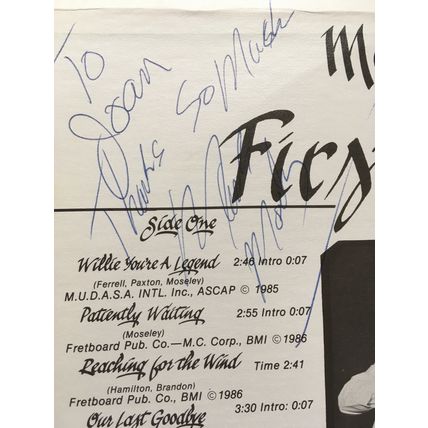 To
Joan
Thanks So Much
M
Firs
Side One
Willie You're A Legend 2:46 Intro 0:07
(Ferrell, Paxton, Moseley)
M.U.D.A.S.A. INTL. Inc., ASCAP © 1985
Patiently Waiting 2:55 Intro 0:07
(Moseley)
Fretboard Pub. Co.—M.C. Corp., BMI © 1986
Reaching for the Wind Time 2:41
(Hamilton, Brandon)
Fretboard Pub. Co., BMI © 1986
Our Last Goodbye 3:30 Intro: 0:07